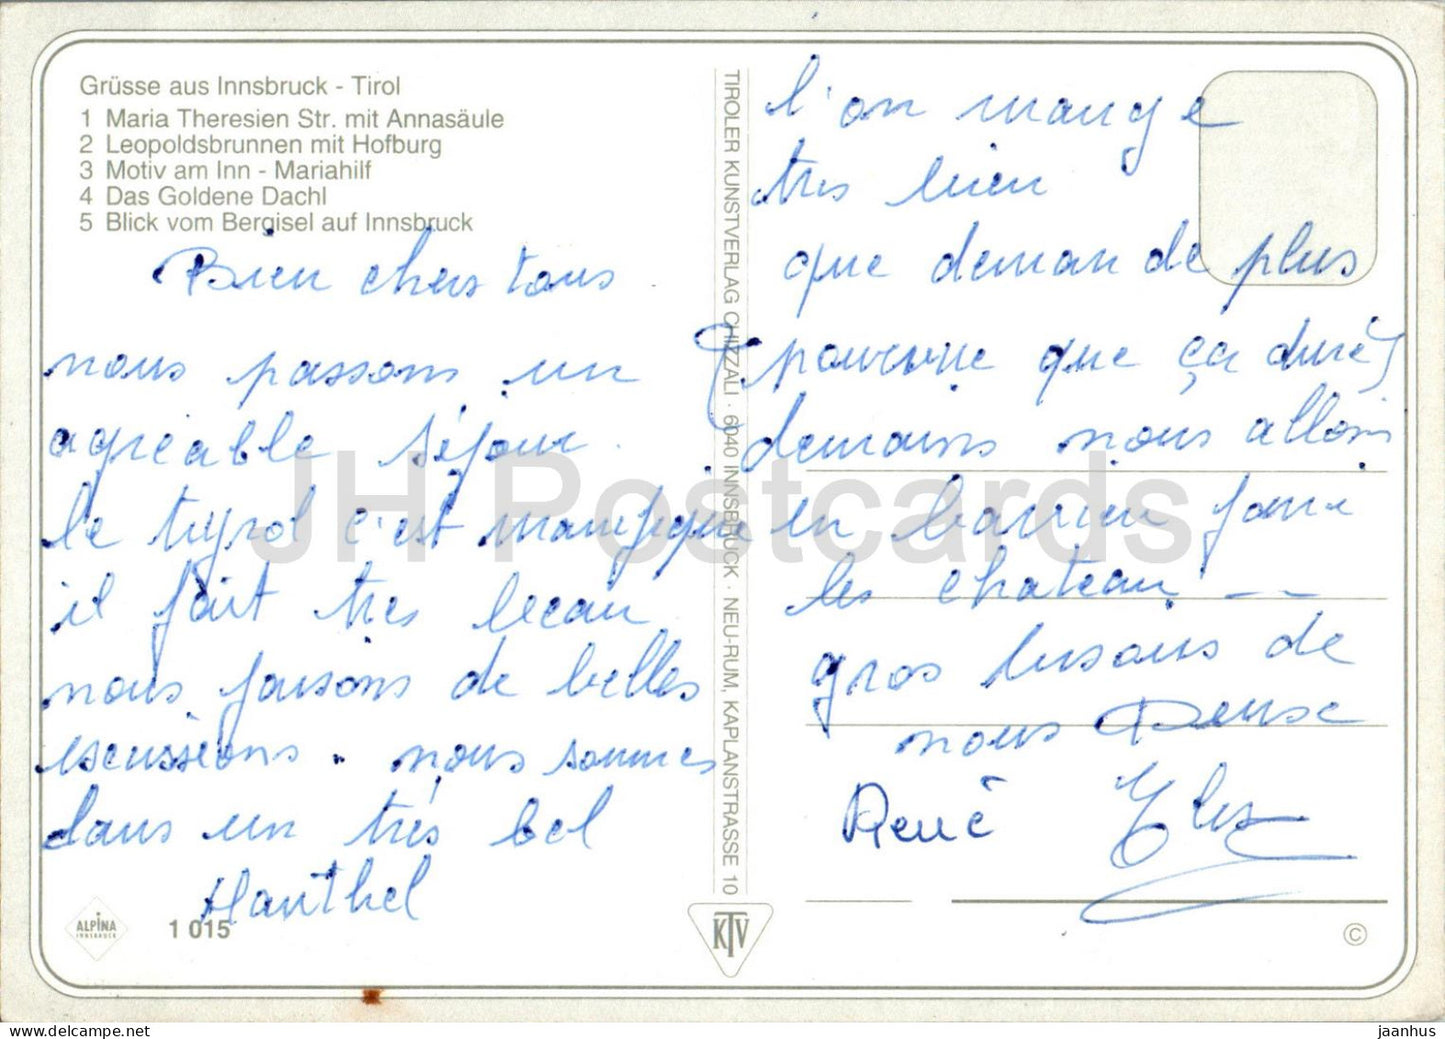 Grüsse aus Innsbruck - Tirol
1 Maria Theresien Str. mit Annasäule
2 Leopoldsbrunnen mit Hofburg
3 Motiv am Inn - Mariahilf
4 Das Goldene Dachl
5 Blick vom Bergisel auf Innsbruck
Bien chers tous
nous passons un
agréable séjour.
le tyrol c'est manifique
il fait tres beau
nous faisons de belles
escussions. nous sommes
dans un très bel
Hauthel
ALPINA
INNSBRUCK
1 015
TIROLER KUNSTVERLAG CHIZZALI · 6040 INNSBRUCK · NEU-RUM, KAPLANSTRASSE 10
KTV
l'on mange
tres bien
que demande plus
pourvue que ça dure
demains nous allons
en bavrien
les chateau --
gros bisous de
nous Denise
René
©
JH Postcards
jaanhus.com